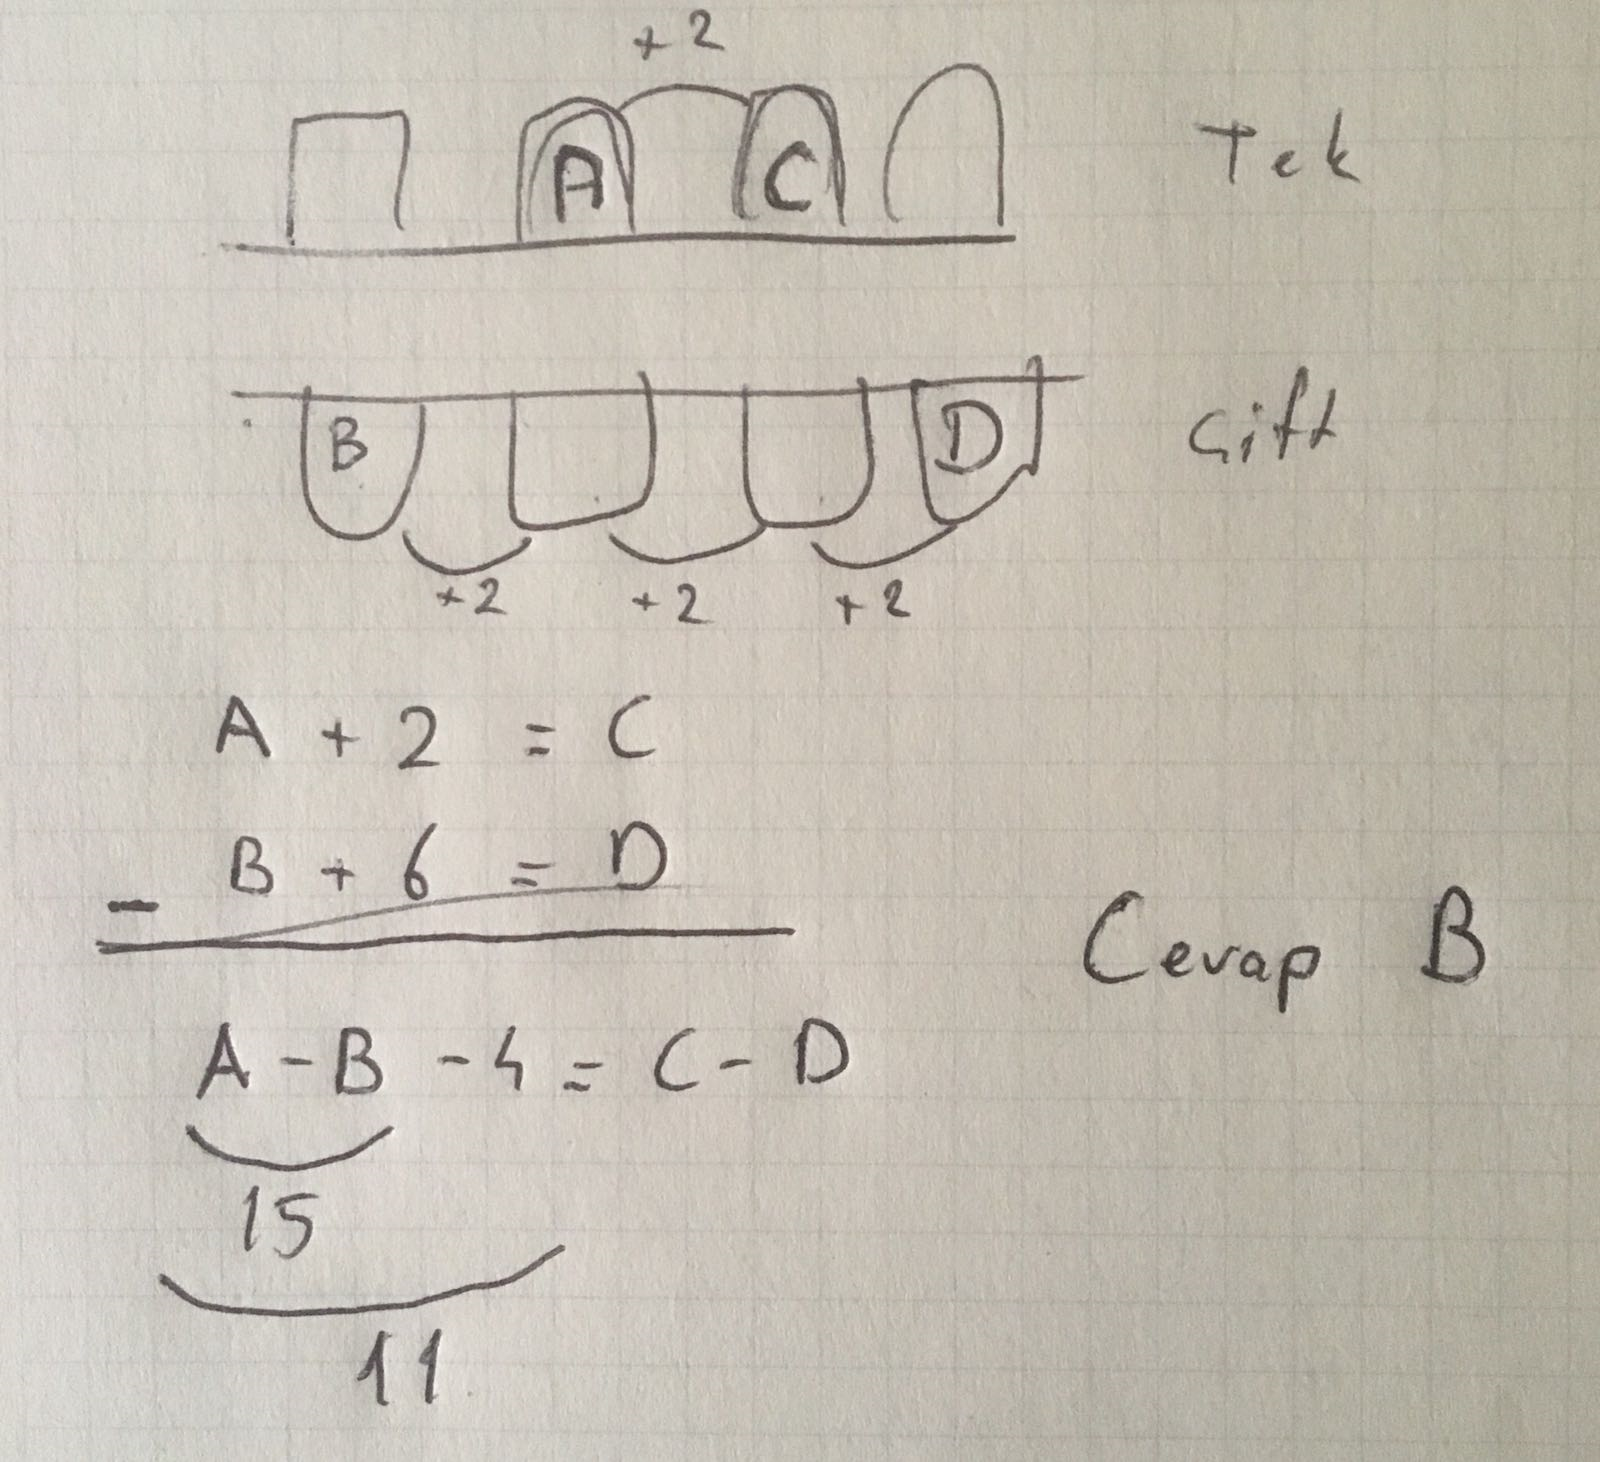 +2
A C Tek
B D Çift
+2 +2 +2
A + 2 = C
- B + 6 = D
Cevap B
A - B - 4 = C - D
15
11